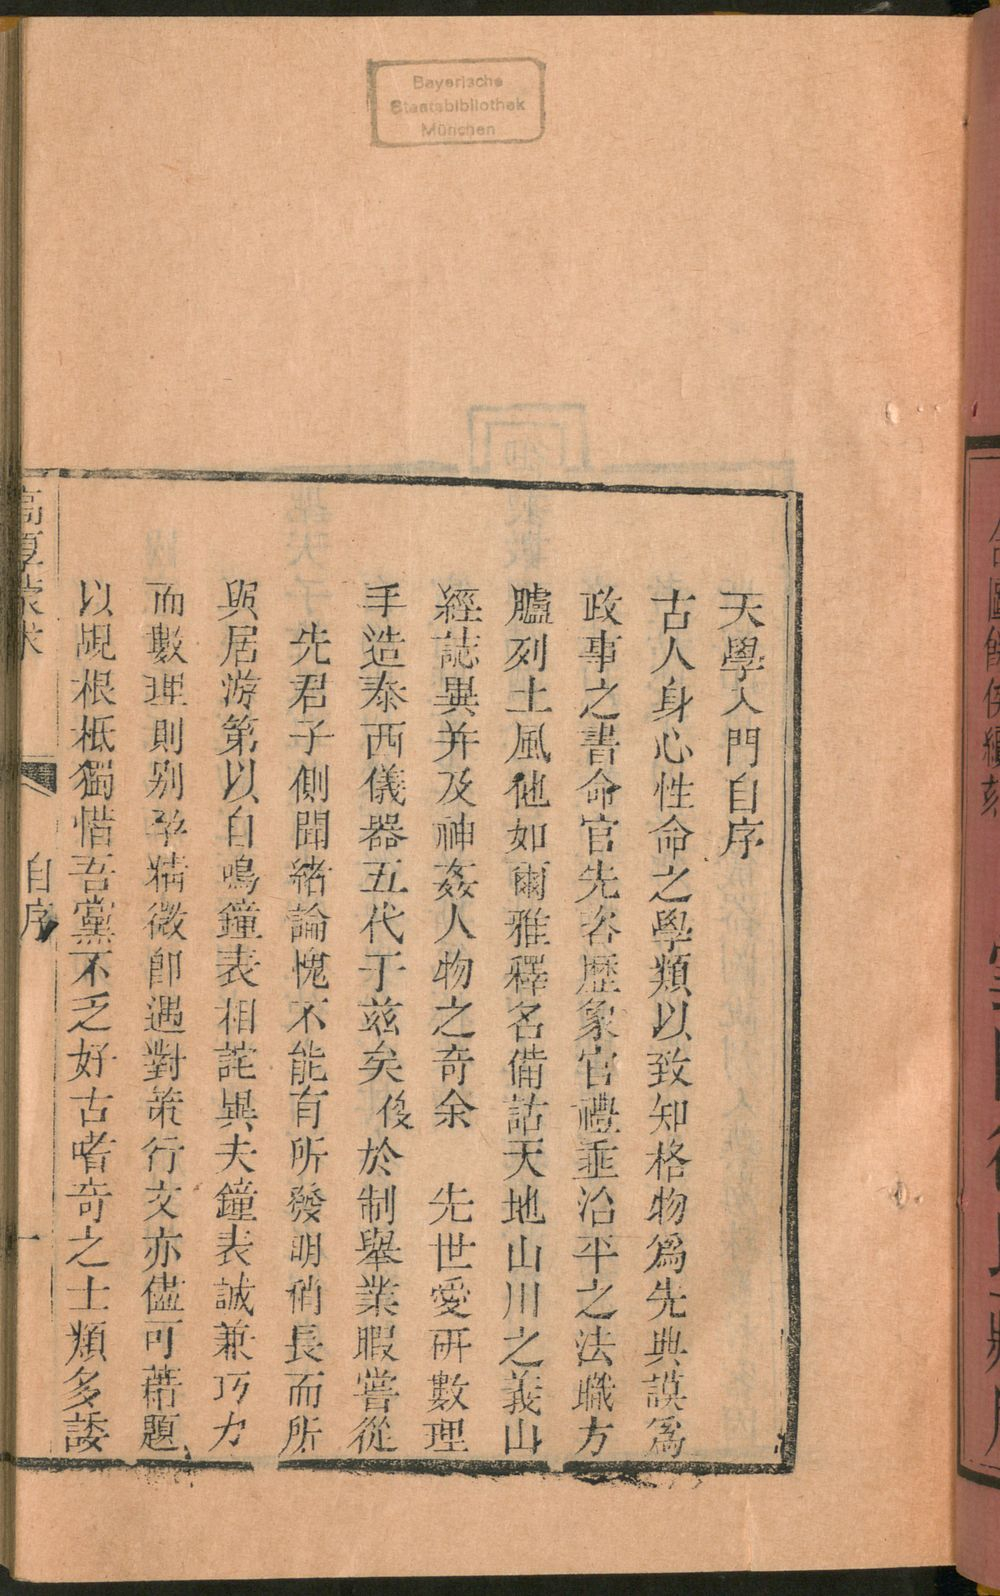 Bayerische
Staatsbibliothek
München
天學入門自序
古人身心性命之學類以致知格物爲先典謨爲
政事之書命官先咨歷象官禮埀治平之法職方
臚列土風他如爾雅釋名備詁天地山川之義山
經誌異并及神姦人物之奇余 先世愛研數理
手造泰西儀器五代于兹矣俊於制舉業暇嘗從
先君子側聞緒論愧不能有所發明稍長而所
與居游第以自鳴鐘表相詫異夫鐘表誠兼巧力
而數理則别孕精微卽遇對策行文亦儘可藉題
以覘根柢獨惜吾黨不乏好古嗜奇之士類多諉
高厚蒙求
自序
一